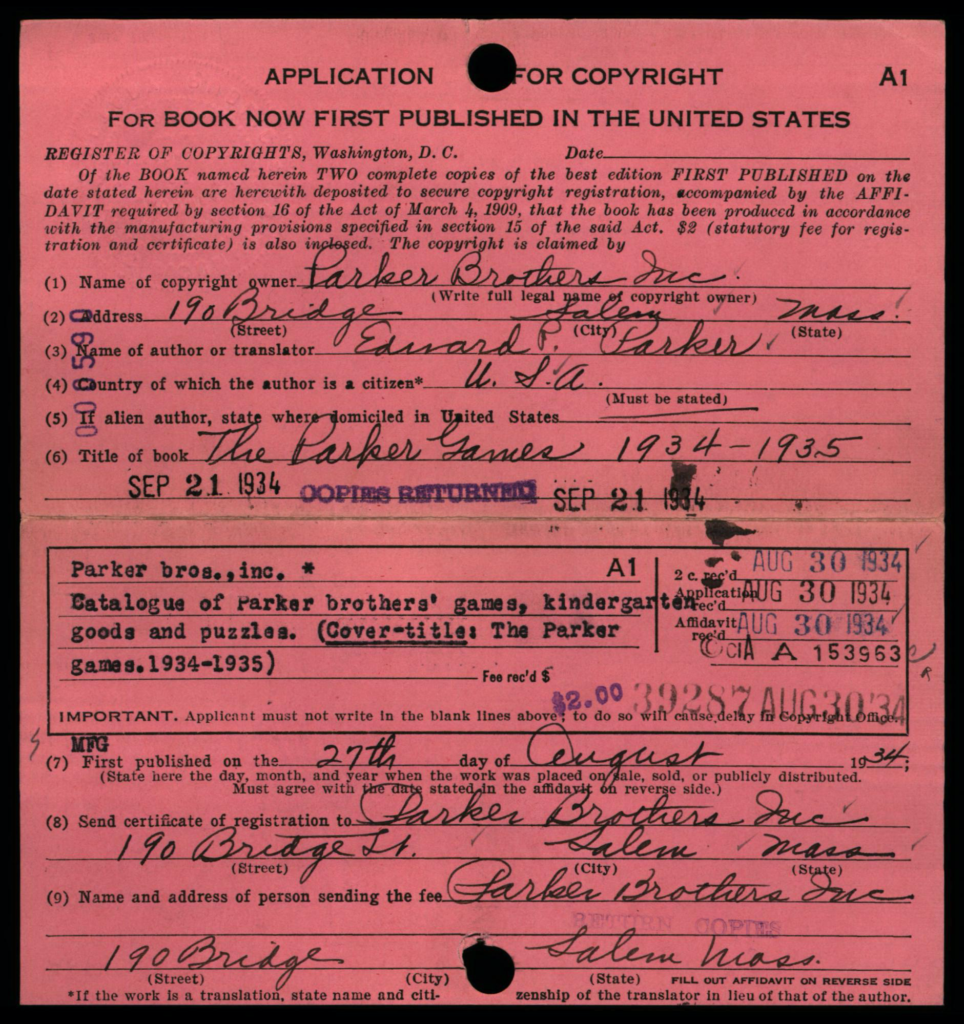 APPLICATION FOR COPYRIGHT A1
FOR BOOK NOW FIRST PUBLISHED IN THE UNITED STATES
REGISTER OF COPYRIGHTS, Washington, D. C. Date
Of the BOOK named herein TWO complete copies of the best edition FIRST PUBLISHED on the
date stated herein are herewith deposited to secure copyright registration, accompanied by the AFFI-
DAVIT required by section 16 of the Act of March 4, 1909, that the book has been produced in accordance
with the manufacturing provisions specified in section 15 of the said Act. $2 (statutory fee for regis-
tration and certificate) is also inclosed. The copyright is claimed by
(1) Name of copyright owner Parker Brothers Inc.
(Write full legal name of copyright owner)
(2) Address 190 Bridge Salem Mass.
(Street) (City) (State)
(3) Name of author or translator Edward P. Parker
(4) Country of which the author is a citizen* U. S. A.
(Must be stated)
(5) If alien author, state where domiciled in United States
(6) Title of book The Parker Games 1934-1935
SEP 21 1934 COPIES RETURNED SEP 21 1934
Parker bros.,inc. * A1
2 c. rec'd AUG 30 1934
Catalogue of Parker brothers' games, kindergarten
Application rec'd AUG 30 1934
goods and puzzles. (Cover-title: The Parker
Affidavit rec'd AUG 30 1934
games.1934-1935)
©CIA A 153963
Fee rec'd $
$2.00 39287 AUG 30 '34
IMPORTANT. Applicant must not write in the blank lines above; to do so will cause delay in Copyright Office.
MFG
(7) First published on the 27th day of August 1934;
(State here the day, month, and year when the work was placed on sale, sold, or publicly distributed.
Must agree with the date stated in the affidavit on reverse side.)
(8) Send certificate of registration to Parker Brothers Inc
190 Bridge St. Salem Mass
(Street) (City) (State)
(9) Name and address of person sending the fee Parker Brothers Inc
RETURN COPIES
190 Bridge Salem Mass.
(Street) (City) (State) FILL OUT AFFIDAVIT ON REVERSE SIDE
*If the work is a translation, state name and citi- zenship of the translator in lieu of that of the author.